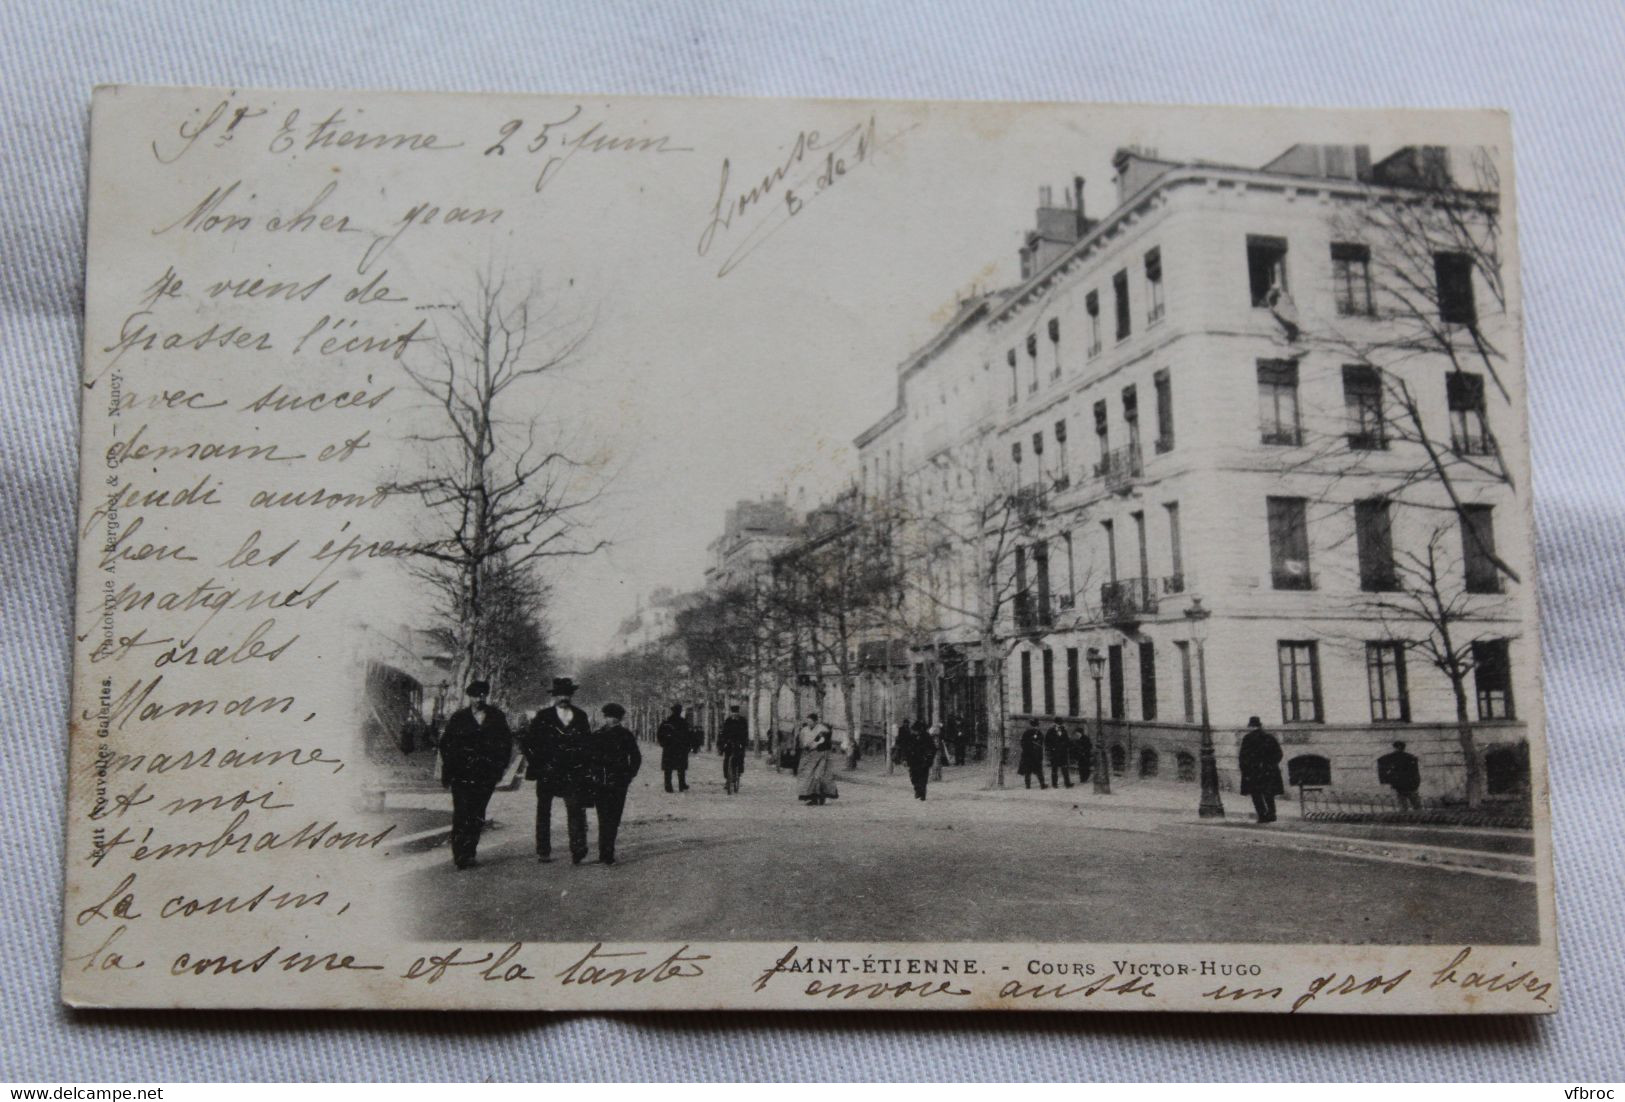 St Etienne 25 juin
Louise
E. de M
Mon cher Jean
Je viens de
passer l'écrit
avec succès
demain et
jeudi auront
lieu les épreuves
pratiques
et orales.
Maman,
marraine,
et moi
t'embrassons.
Le cousin,
la cousine et la tante t'envoie aussi un gros baiser
SAINT-ÉTIENNE. - COURS VICTOR-HUGO
Edit Nouvelles Galeries. Phototypie A. Bergeret & Cie - Nancy.
delcampe.net
vfbroc